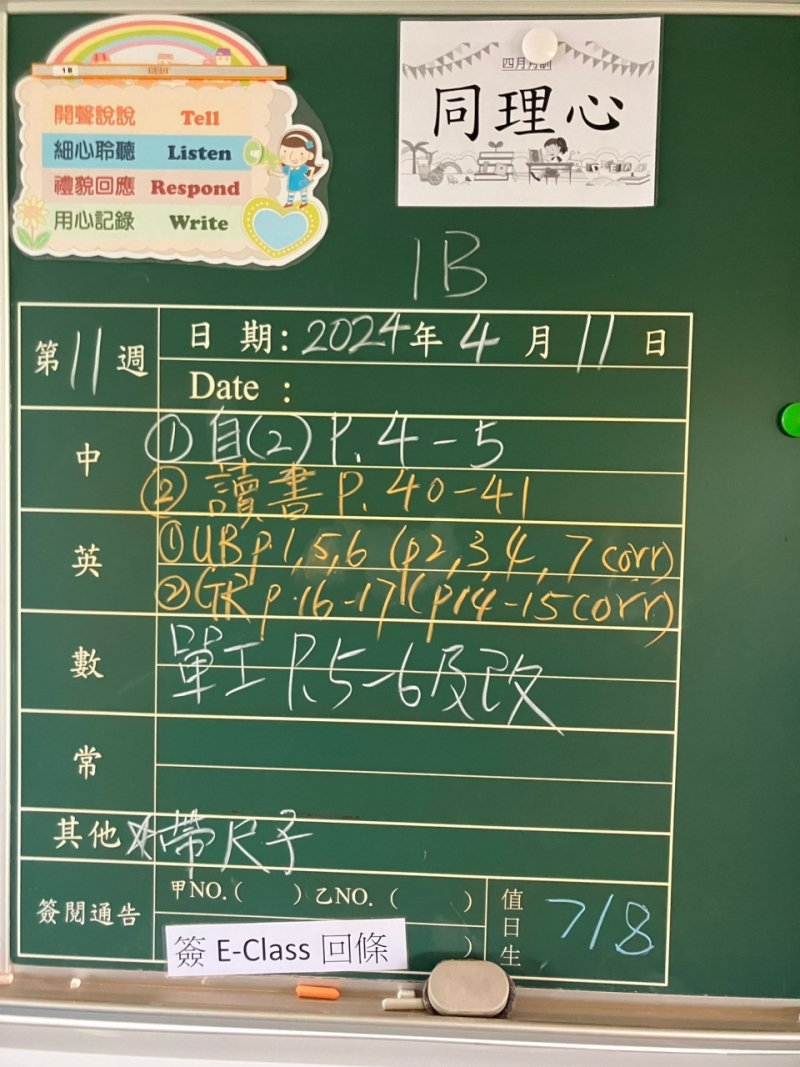 開聲說說 Tell
細心聆聽 Listen
禮貌回應 Respond
用心記錄 Write
四月月訓
同理心
1B
第11週
日期：2024年4月11日
Date :
中
①自(2) P.4-5
②讀書 P.40-41
英
①UB p1,5,6 (p2,3,4,7 corr)
②GR p.16-17 (p14-15 corr)
數
單工 P.5-6及改
常
其他 *帶尺子
簽閱通告
甲NO.( ) 乙NO.( )
簽 E-Class 回條 )
值日生 7/8